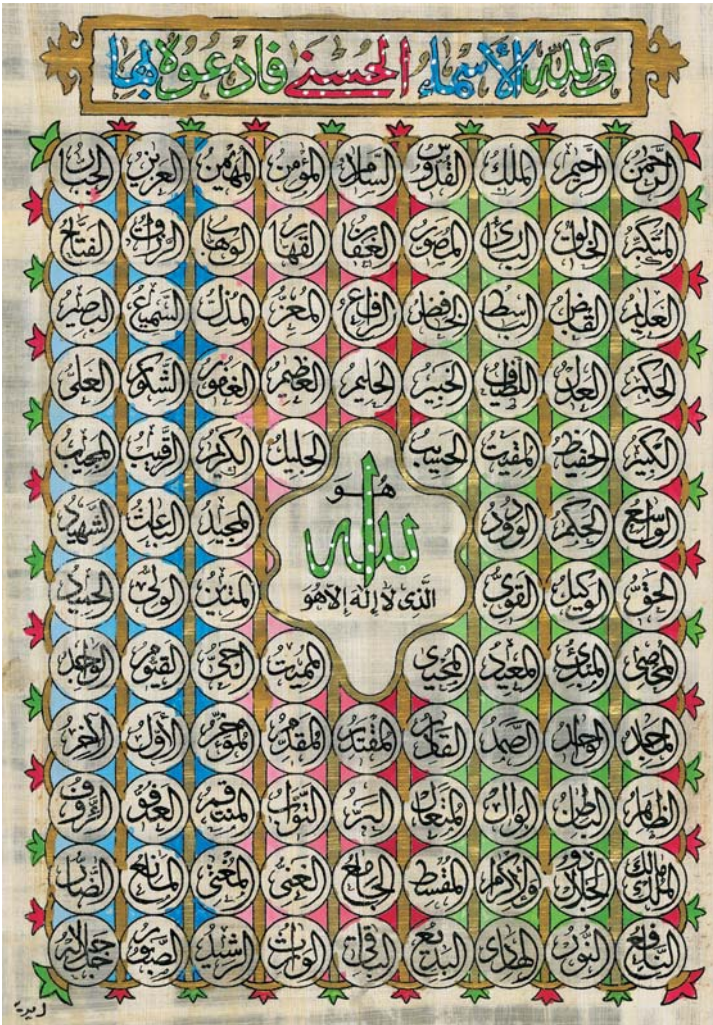 ولله الأسماء الحسنى فادعوه بها
الرحمن الرحيم الملك القدوس السلام المؤمن المهيمن العزيز الجبار
المتكبر الخالق البارئ المصور الغفار القهار الوهاب الرزاق الفتاح
العليم القابض الباسط الخافض الرافع المعز المذل السميع البصير
الحكم العدل اللطيف الخبير الحليم العظيم الغفور الشكور العلي
الكبير الحفيظ المقيت الحسيب الجليل الكريم الرقيب المجيب
الواسع الحكيم الودود المجيد الباعث الشهيد
هو
الله
الذي لا إله إلا هو
الحق الوكيل القوي المتين الولي الحميد
المحصي المبدئ المعيد المحيي المميت الحي القيوم الواجد
الماجد الواحد الصمد القادر المقتدر المقدم المؤخر الأول الآخر
الظاهر الباطن الوالي المتعال البر التواب المنتقم العفو الرؤوف
مالك الملك ذو الجلال والإكرام المقسط الجامع الغني المغني المانع الضار
النافع النور الهادي البديع الباقي الوارث الرشيد الصبور جل جلاله